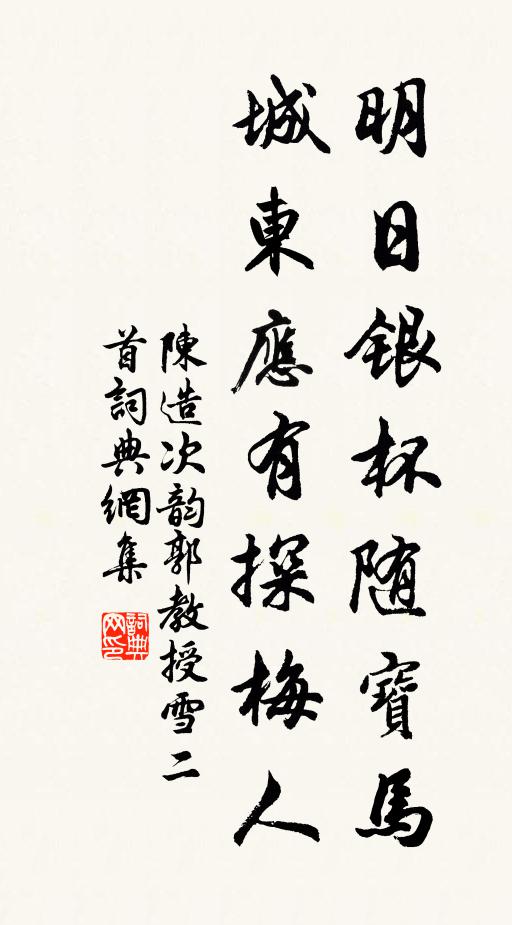 明日銀杯随寶馬
城東應有探梅人
陳造次韵郭教授雪二
首詞典網集
詞典
网印